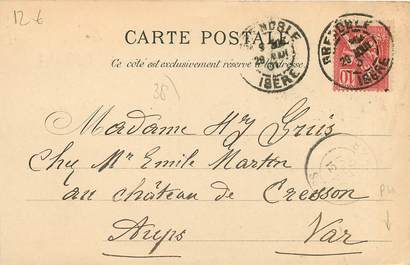 12 €
CARTE POSTALE
Ce côté est exclusivement réservé à l'adresse
GRENOBLE
ISÈRE
GRENOBLE
ISÈRE
10
38
Madame Hy Gris
Chez Mr Emile Martin
au château de Cresson
Aups Var